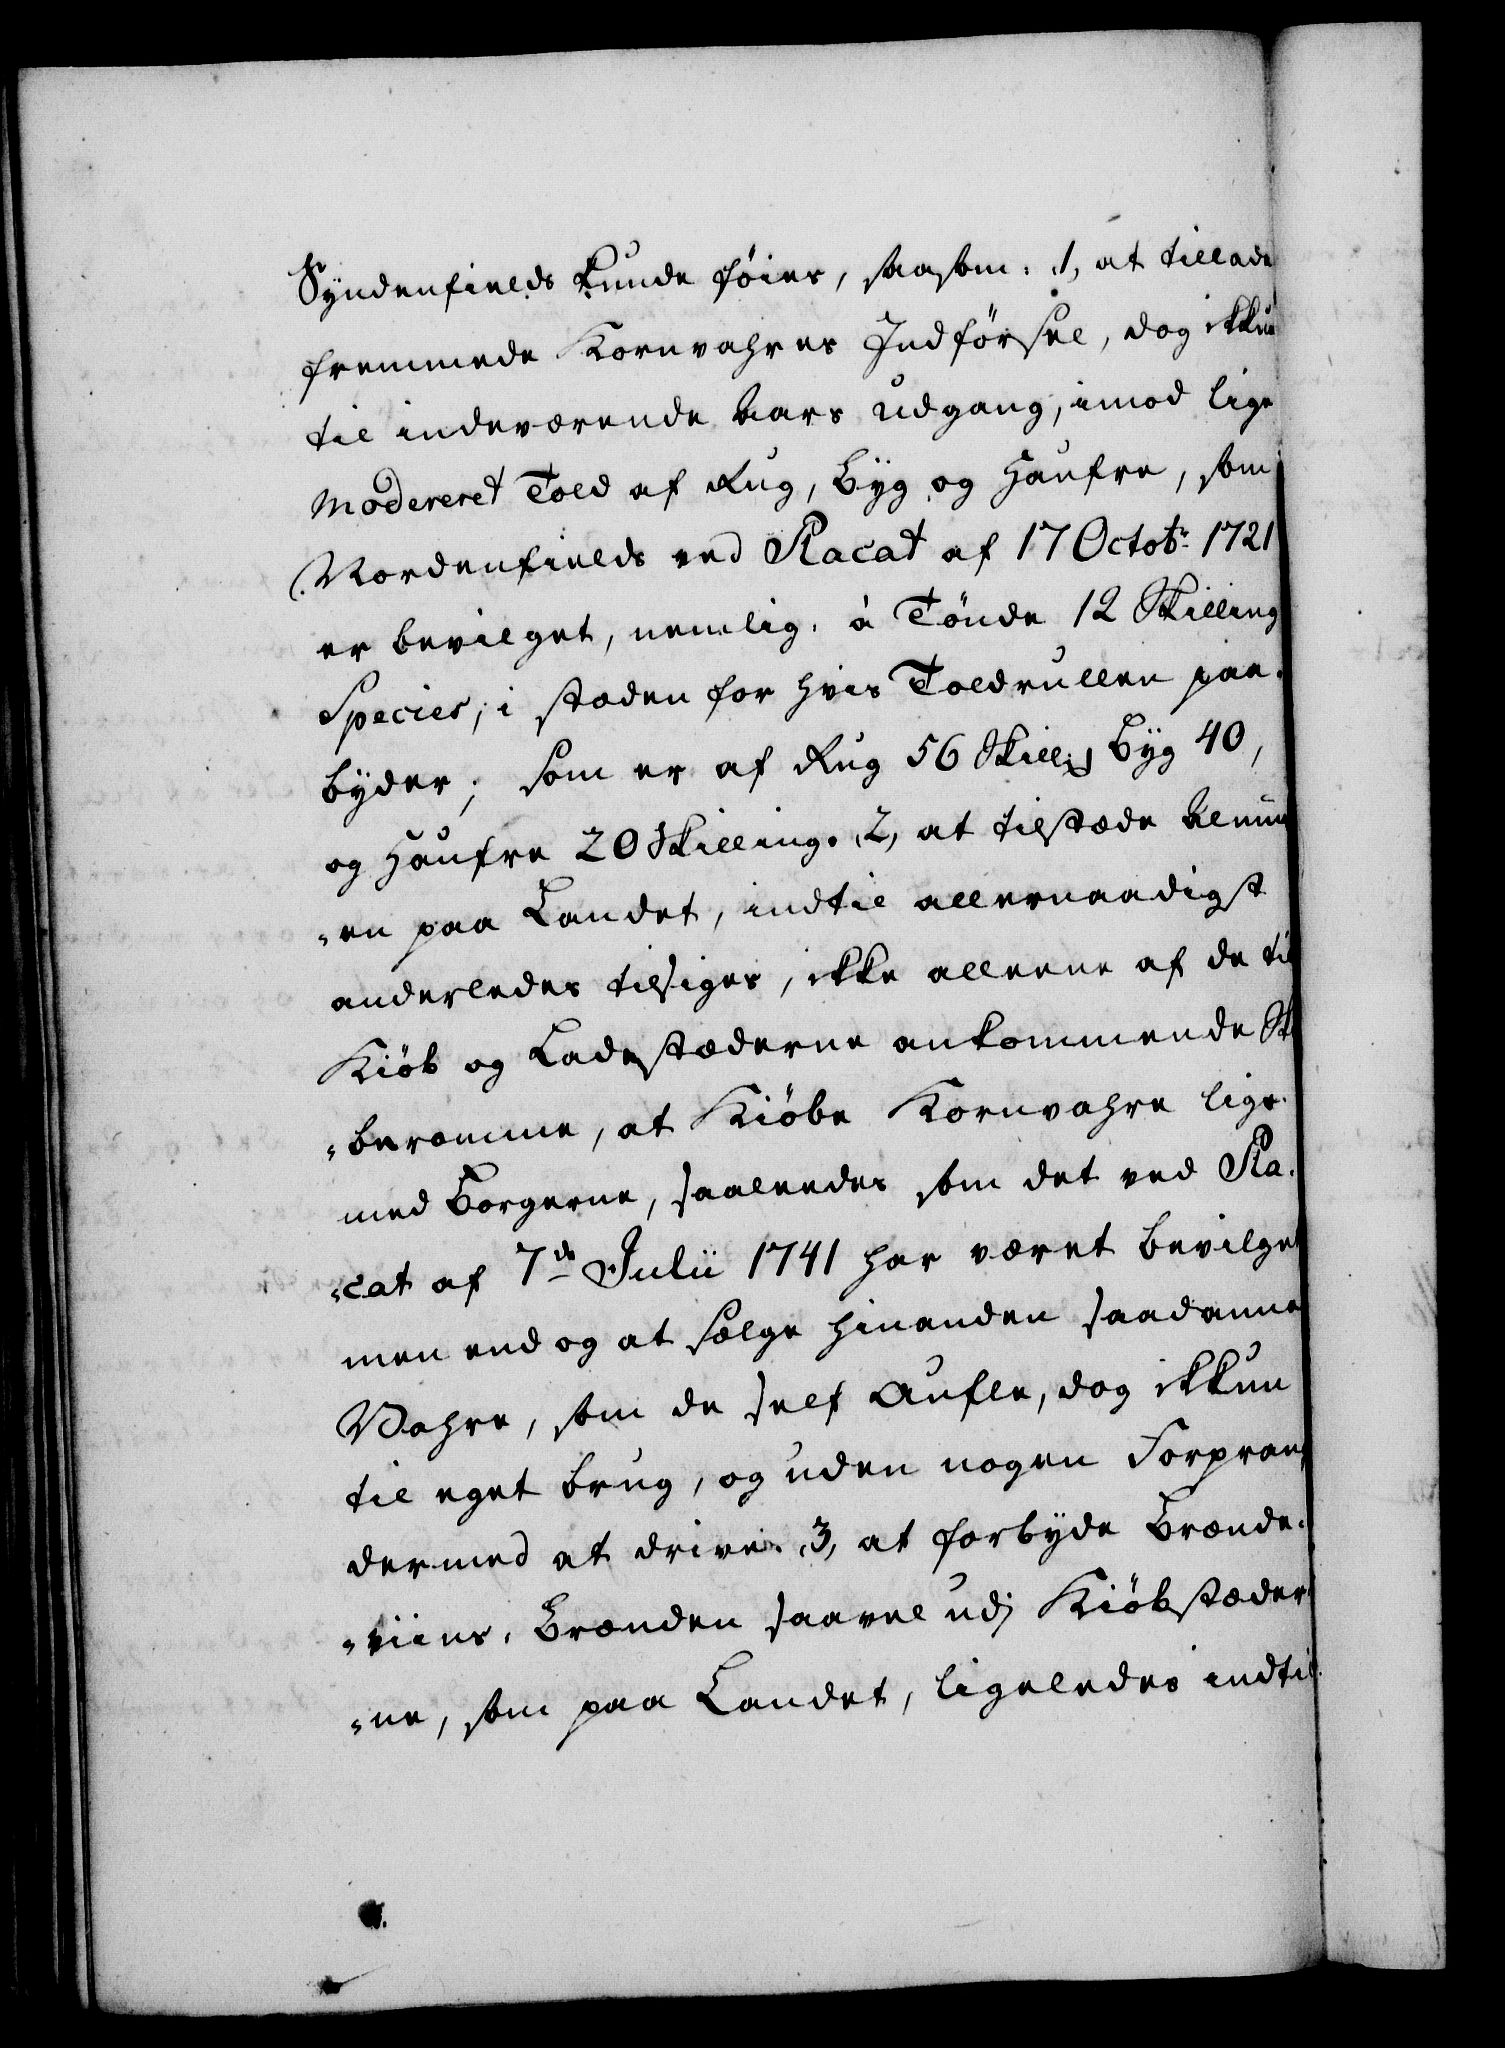 Syndenfields kunde føies, saasom: 1, at tillade
fremmede Kornvahres Indførsel, dog ikkun
til indeværende Aars udgang, imod lige
modereret Told af Rug, Byg og Haufre, som
Nordenfields ved Placat af 17 Octobr: 1721
er bevilget, nemlig: à Tønde 12 Skilling
Species, i stæden for hvis Toldrullen paa-
byder; som er af Rug 56 Skill: Byg 40,
og Haufre 20 Skilling. 2, at tilstæde Almu
-en paa Landet, indtil allernaadigst
anderledes tilsiges, ikke alleene af de til
Kiøb og Ladestæderne ankommende Sk
-beromme, at Kiøbe Kornvahre lige
med Borgerne, saaleedes som det ved Pla-
-cat af 7de Julii 1741 har været bevilget
men end og at sælge hinanden saadanne
Vahre, som de self aufle, dog ikkun
til eget brug, og uden nogen Forprang
dermed at drive. 3, at forbyde Brænde-
-viins Brænden saavel udj Kiøbstæder
-ne, som paa Landet, ligeledes indtil